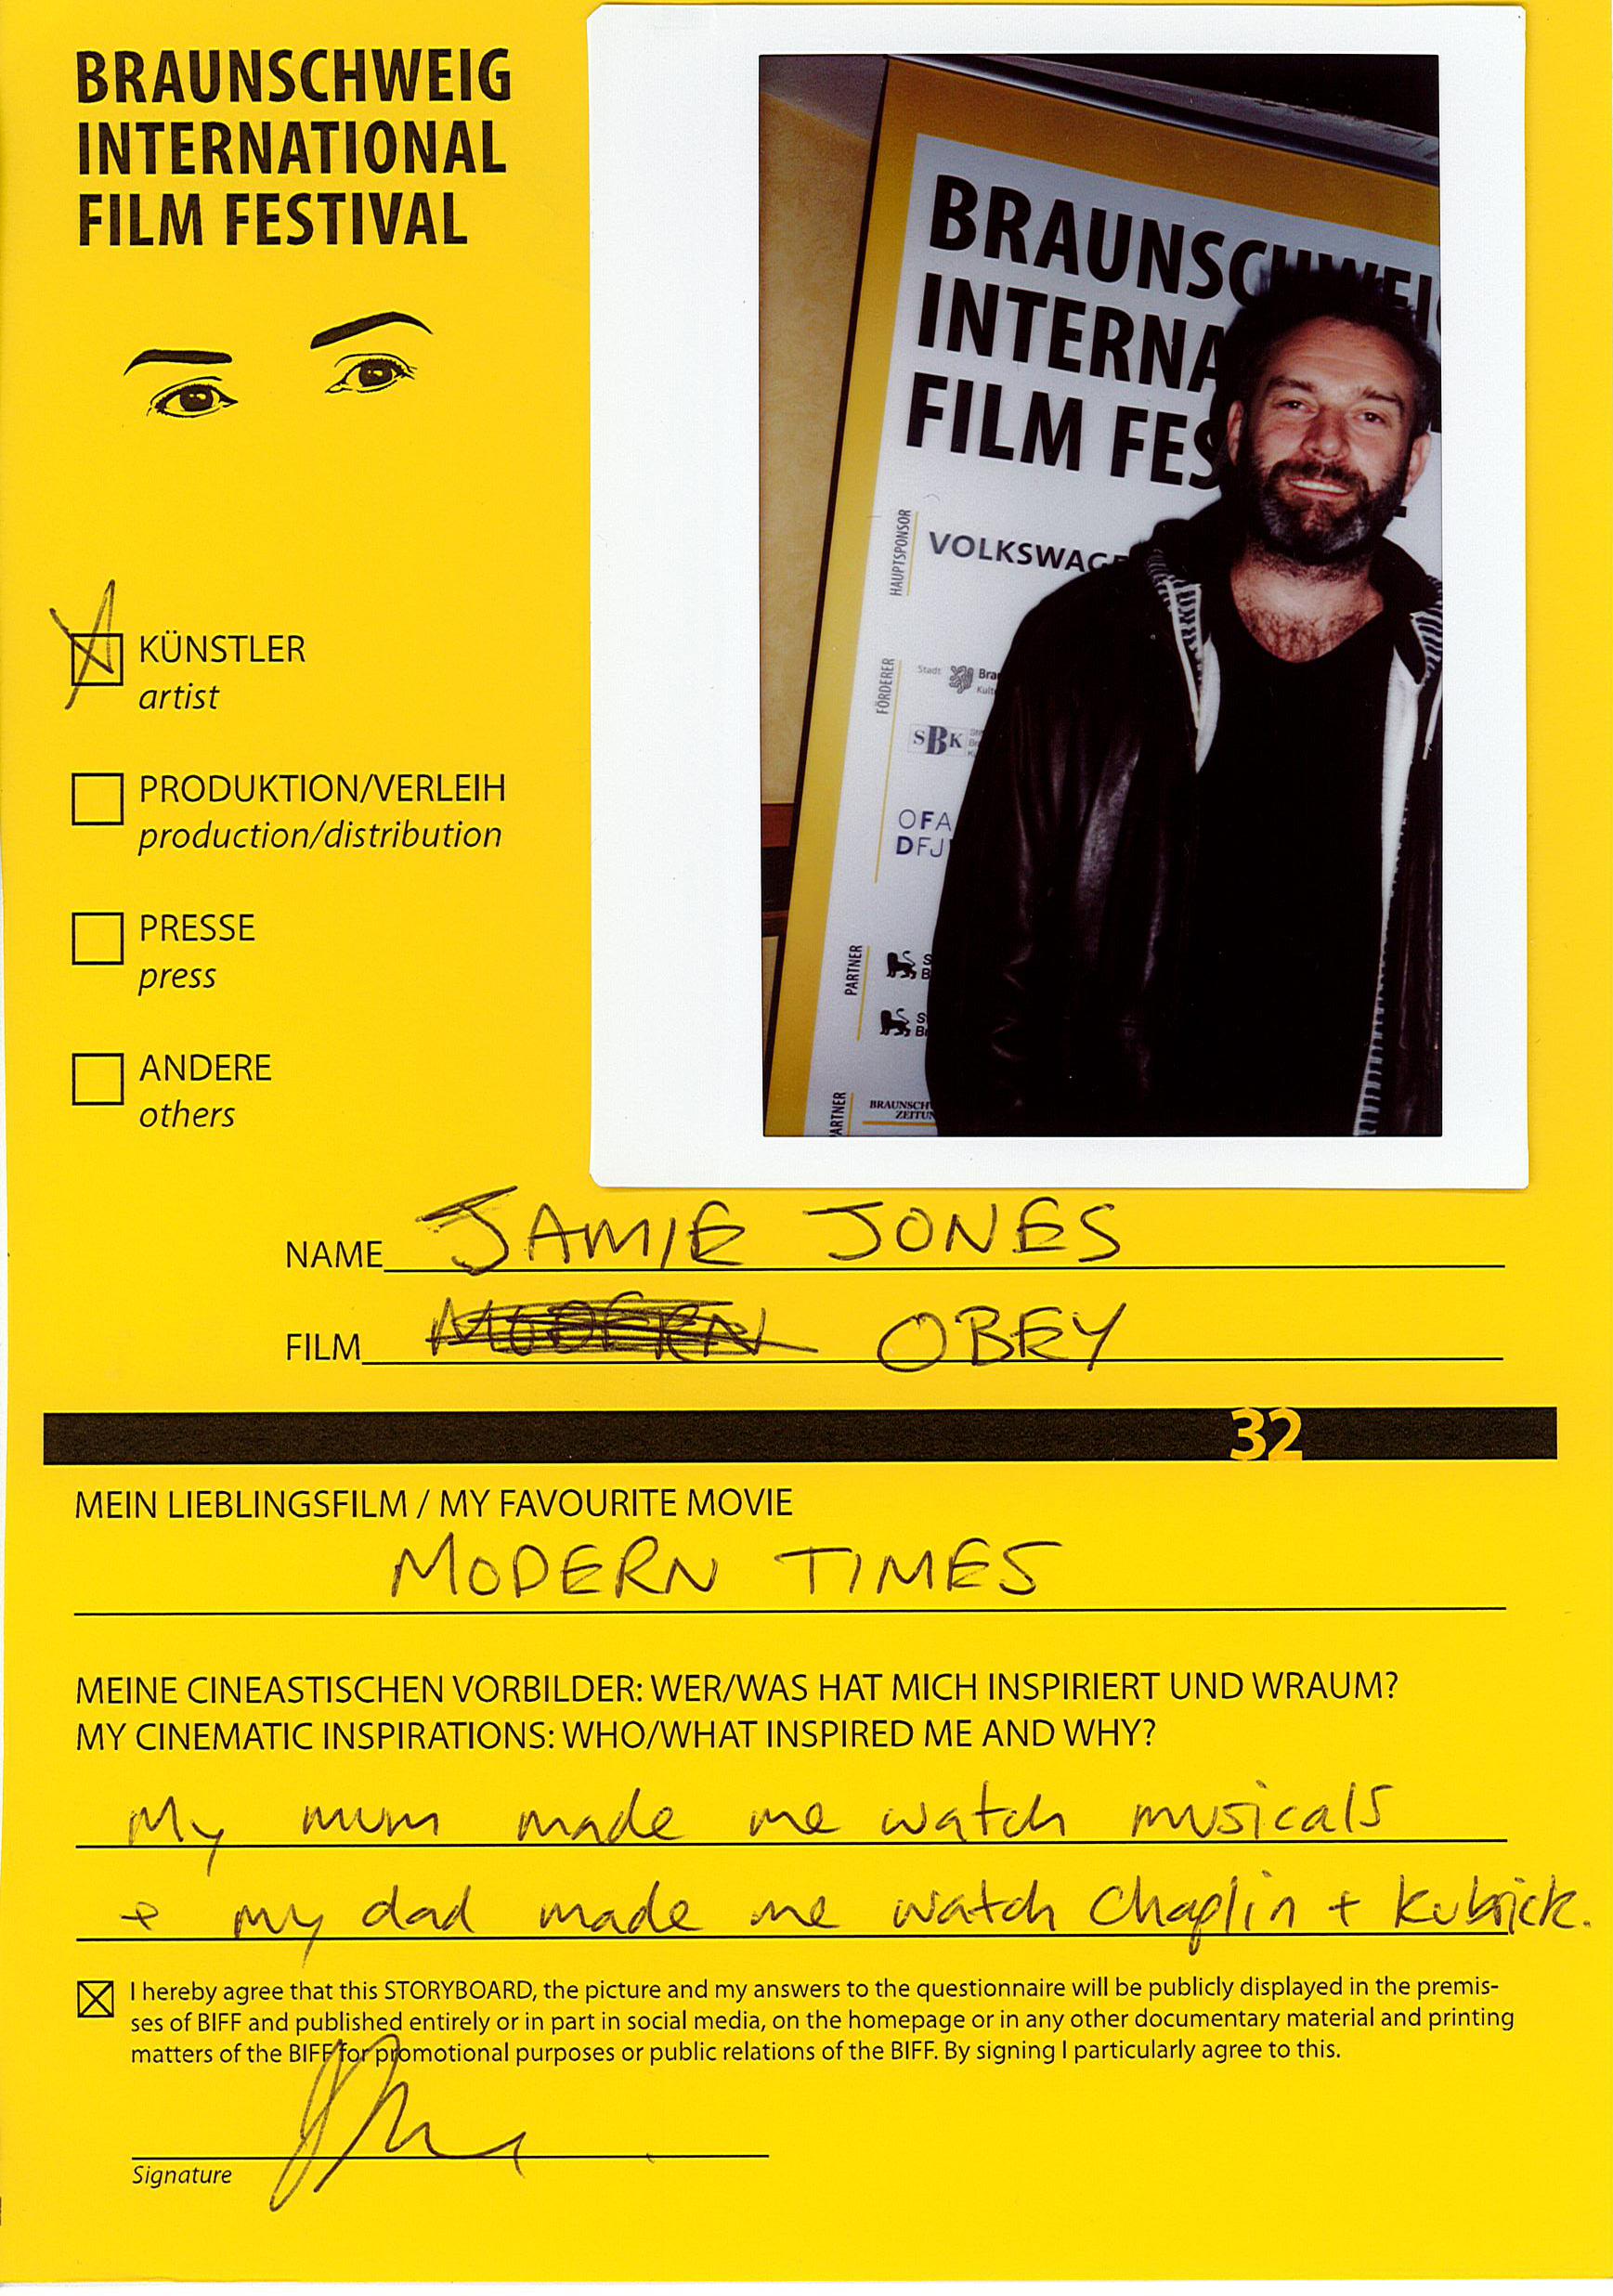 BRAUNSCHWEIG
INTERNATIONAL
FILM FESTIVAL
BRAUNSCHWEIG
INTERNA
FILM FES
HAUPTSPONSOR
VOLKSWAGE
FÖRDERER
Stadt
Bra
Kult
SBK
OFA
DFJ
PARTNER
S
B
S
B
PARTNER
BRAUNSCH
ZEITUN
KÜNSTLER
artist
PRODUKTION/VERLEIH
production/distribution
PRESSE
press
ANDERE
others
NAME JAMIE JONES
FILM MODERN OBEY
32
MEIN LIEBLINGSFILM / MY FAVOURITE MOVIE
MODERN TIMES
MEINE CINEASTISCHEN VORBILDER: WER/WAS HAT MICH INSPIRIERT UND WRAUM?
MY CINEMATIC INSPIRATIONS: WHO/WHAT INSPIRED ME AND WHY?
My mum made me watch musicals
+ my dad made me watch Chaplin + Kubrick.
I hereby agree that this STORYBOARD, the picture and my answers to the questionnaire will be publicly displayed in the premis-
ses of BIFF and published entirely or in part in social media, on the homepage or in any other documentary material and printing
matters of the BIFF for promotional purposes or public relations of the BIFF. By signing I particularly agree to this.
Signature